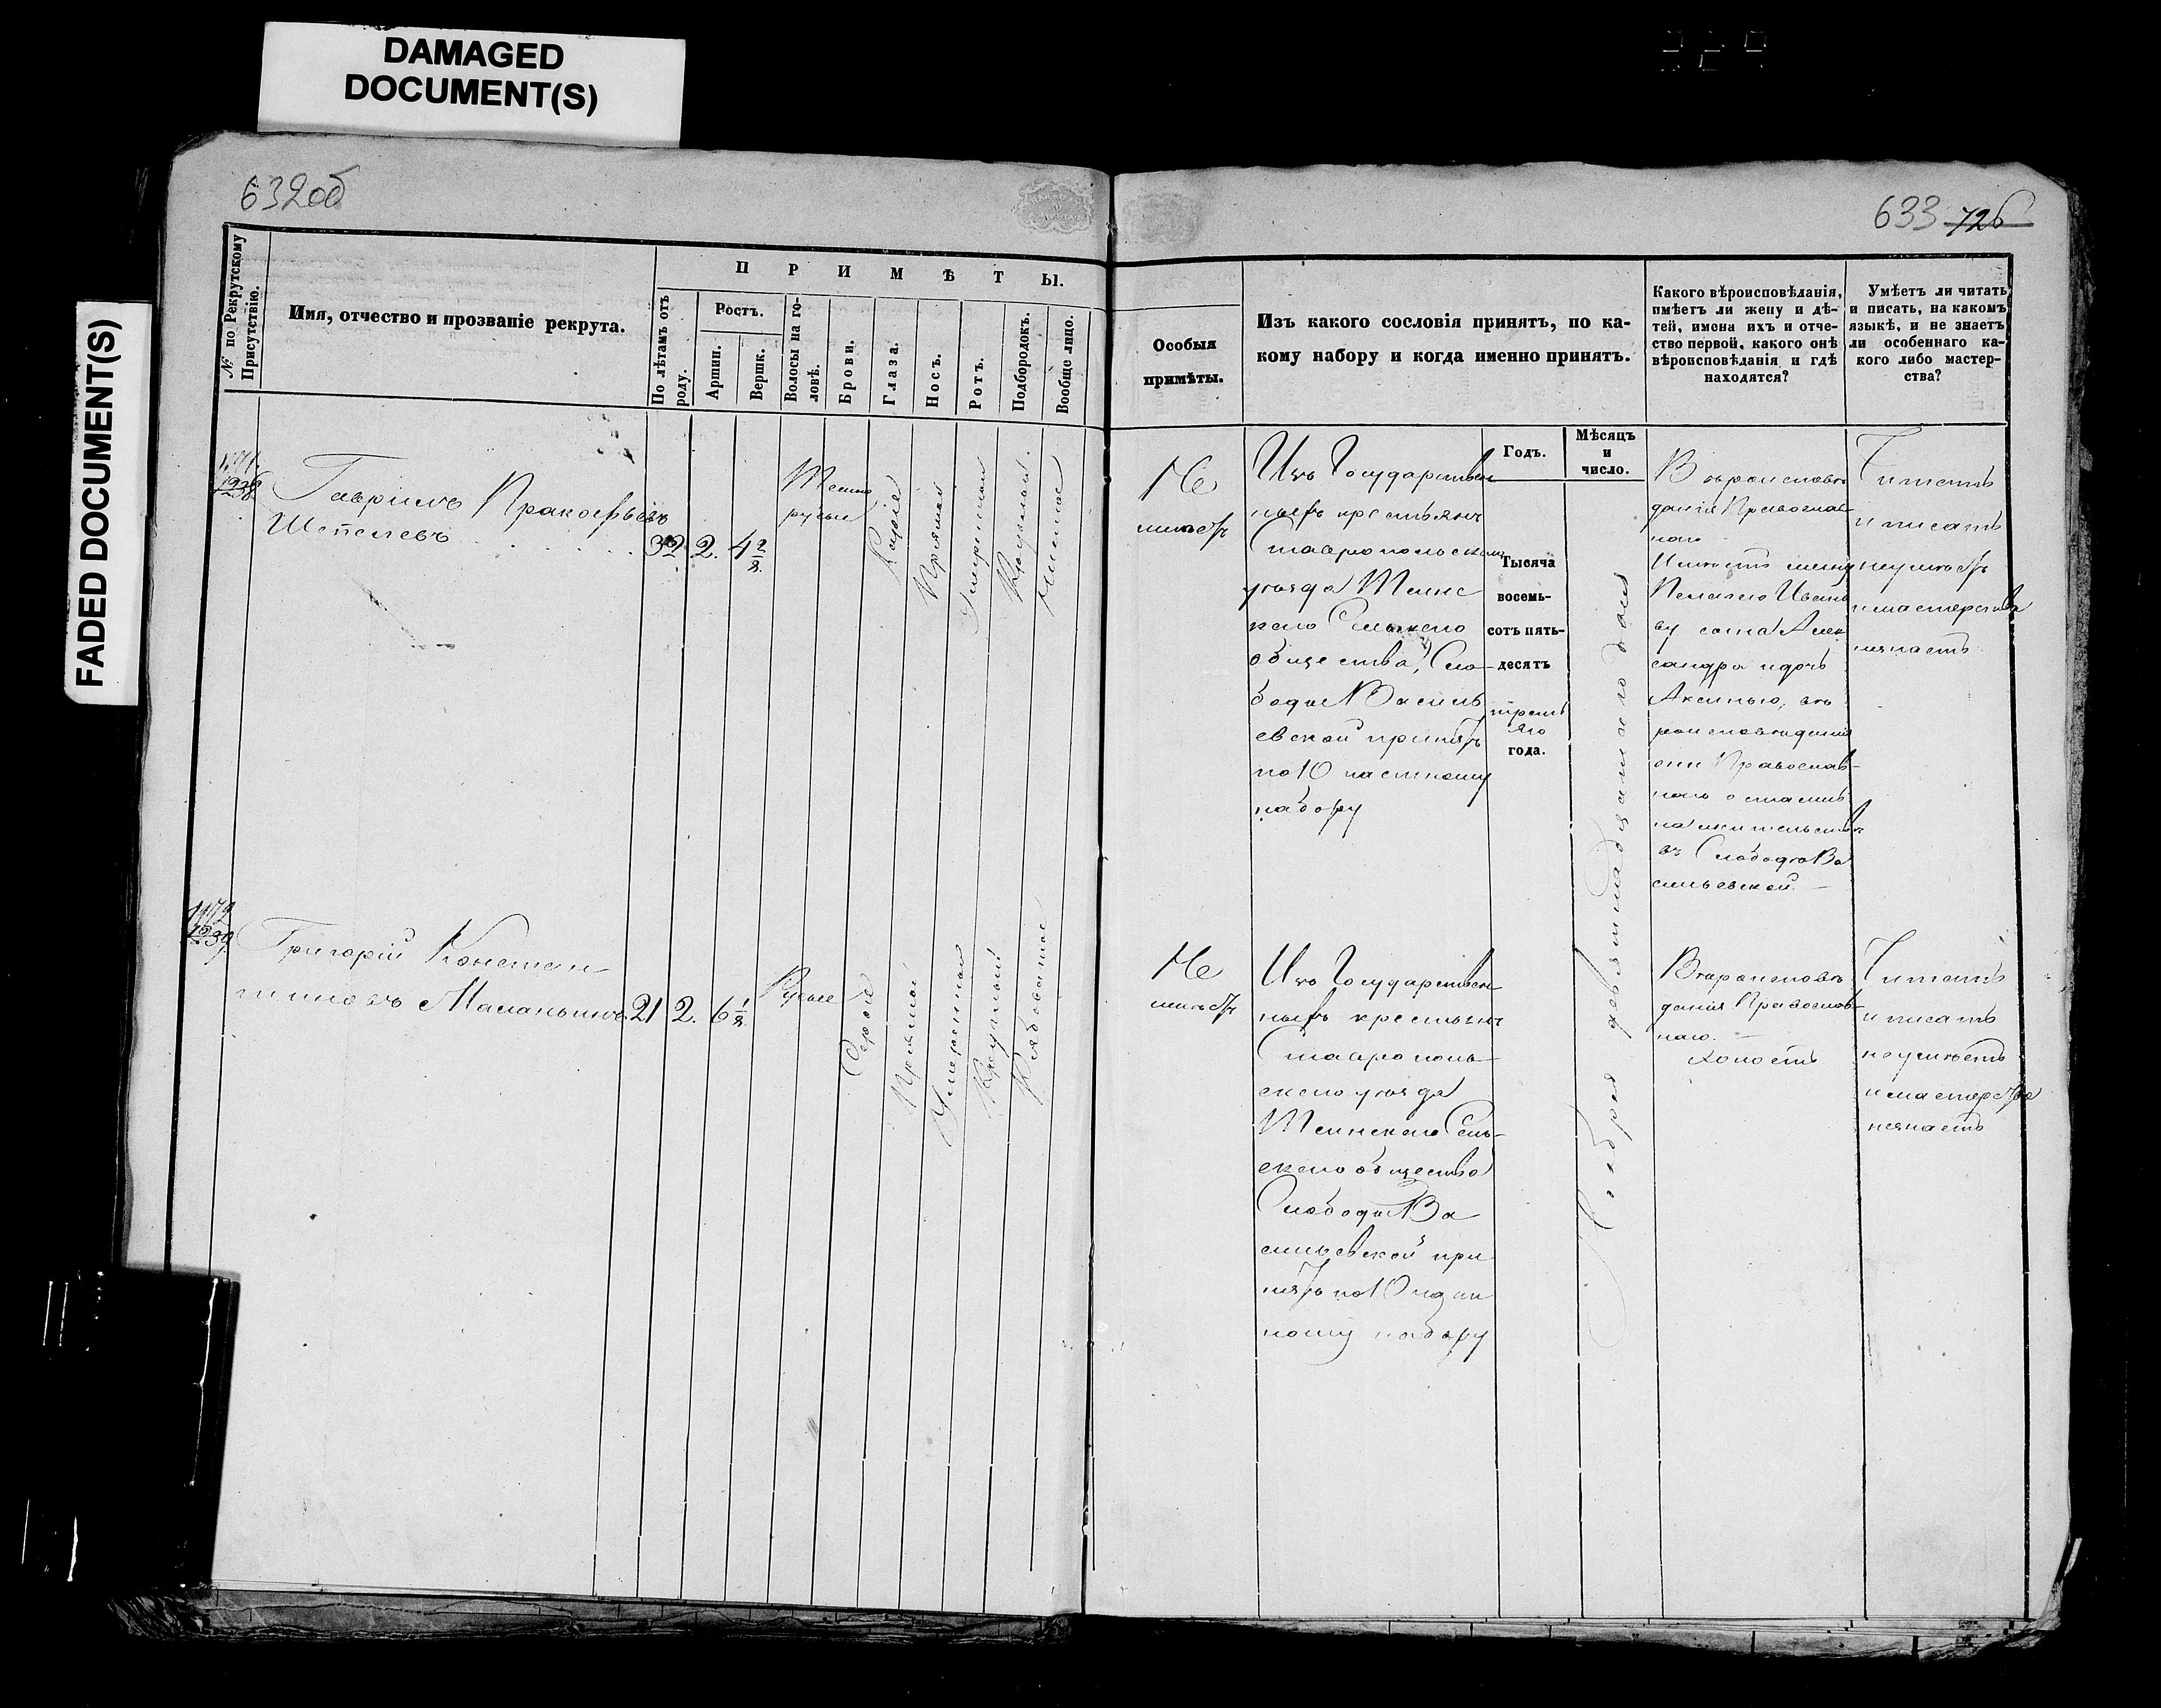 DAMAGED
DOCUMENT(S)
FADED DOCUMENT(S)
632об
633 726
№ по Рекрутскому
Присутствію.
Имя, отчество и прозваніе рекрута.
П Р И М Ѣ Т Ы.
По лѣтамъ отъ
роду.
Ростъ.
Аршин.
Вершк.
Волосы на го-
ловѣ.
Брови.
Глаза.
Носъ.
Ротъ.
Подбородокъ.
Вообще лицо.
Особыя
примѣты.
Изъ какого сословія принятъ, по ка-
кому набору и когда именно принятъ.
Какого вѣроисповѣданія,
имѣетъ ли жену и дѣ-
тей, имена ихъ и отче-
ство первой, какого онѣ
вѣроисповѣданія и гдѣ
находятся?
Умѣетъ ли читать
и писать, на какомъ
языкѣ, и не знаетъ
ли особеннаго ка-
кого либо мастер-
ства?
Годъ.
Мѣсяцъ
и
число.
1238
Гаврилъ Пракофьевъ
Шепелевъ
32 2. 4 2/8.
Темно
русые
Каріе
Прямой
Умеренной
Круглый
Чистое
Не
имѣетъ
Изъ Государствен
ныхъ крестьянъ
Ставропольскаго
уѣзда Теинс
каго Сельскаго
общества, Сло-
боды Василь
евской принятъ
по 10 частному
набору
Тысяча
восемь-
сотъ пять-
десятъ
третья
яго
года.
Ноября девятнадцатаго дня
Вѣроисповѣ
данія Православ-
наго
Имѣетъ жену
Пелагею Ивано
ву сына Алек
сандра и дочь
Аксинью, вѣ
роисповѣданія
они Православ-
наго остались
на жительствѣ
въ Слободѣ Ва
сильевской.
Читать
и писать
неумѣетъ
и мастерства
незнаетъ
1239
Григорій Констан
тиновъ Маланьинъ 21 2. 6 1/8.
Русые
Серые
Прямой
Умеренной
Круглый
Рябоватое
Не
имѣетъ
Изъ Государствен-
ныхъ крестьянъ
Ставрополь-
скаго уѣзда
Теинскаго Сель-
скаго общества
Слободы Ва
сильевской при
нятъ по 10 части
ному набору
Вѣроисповѣ
данія Православ-
наго.
холостъ
Читать
и писать
неумѣетъ
и мастерства
незнаетъ